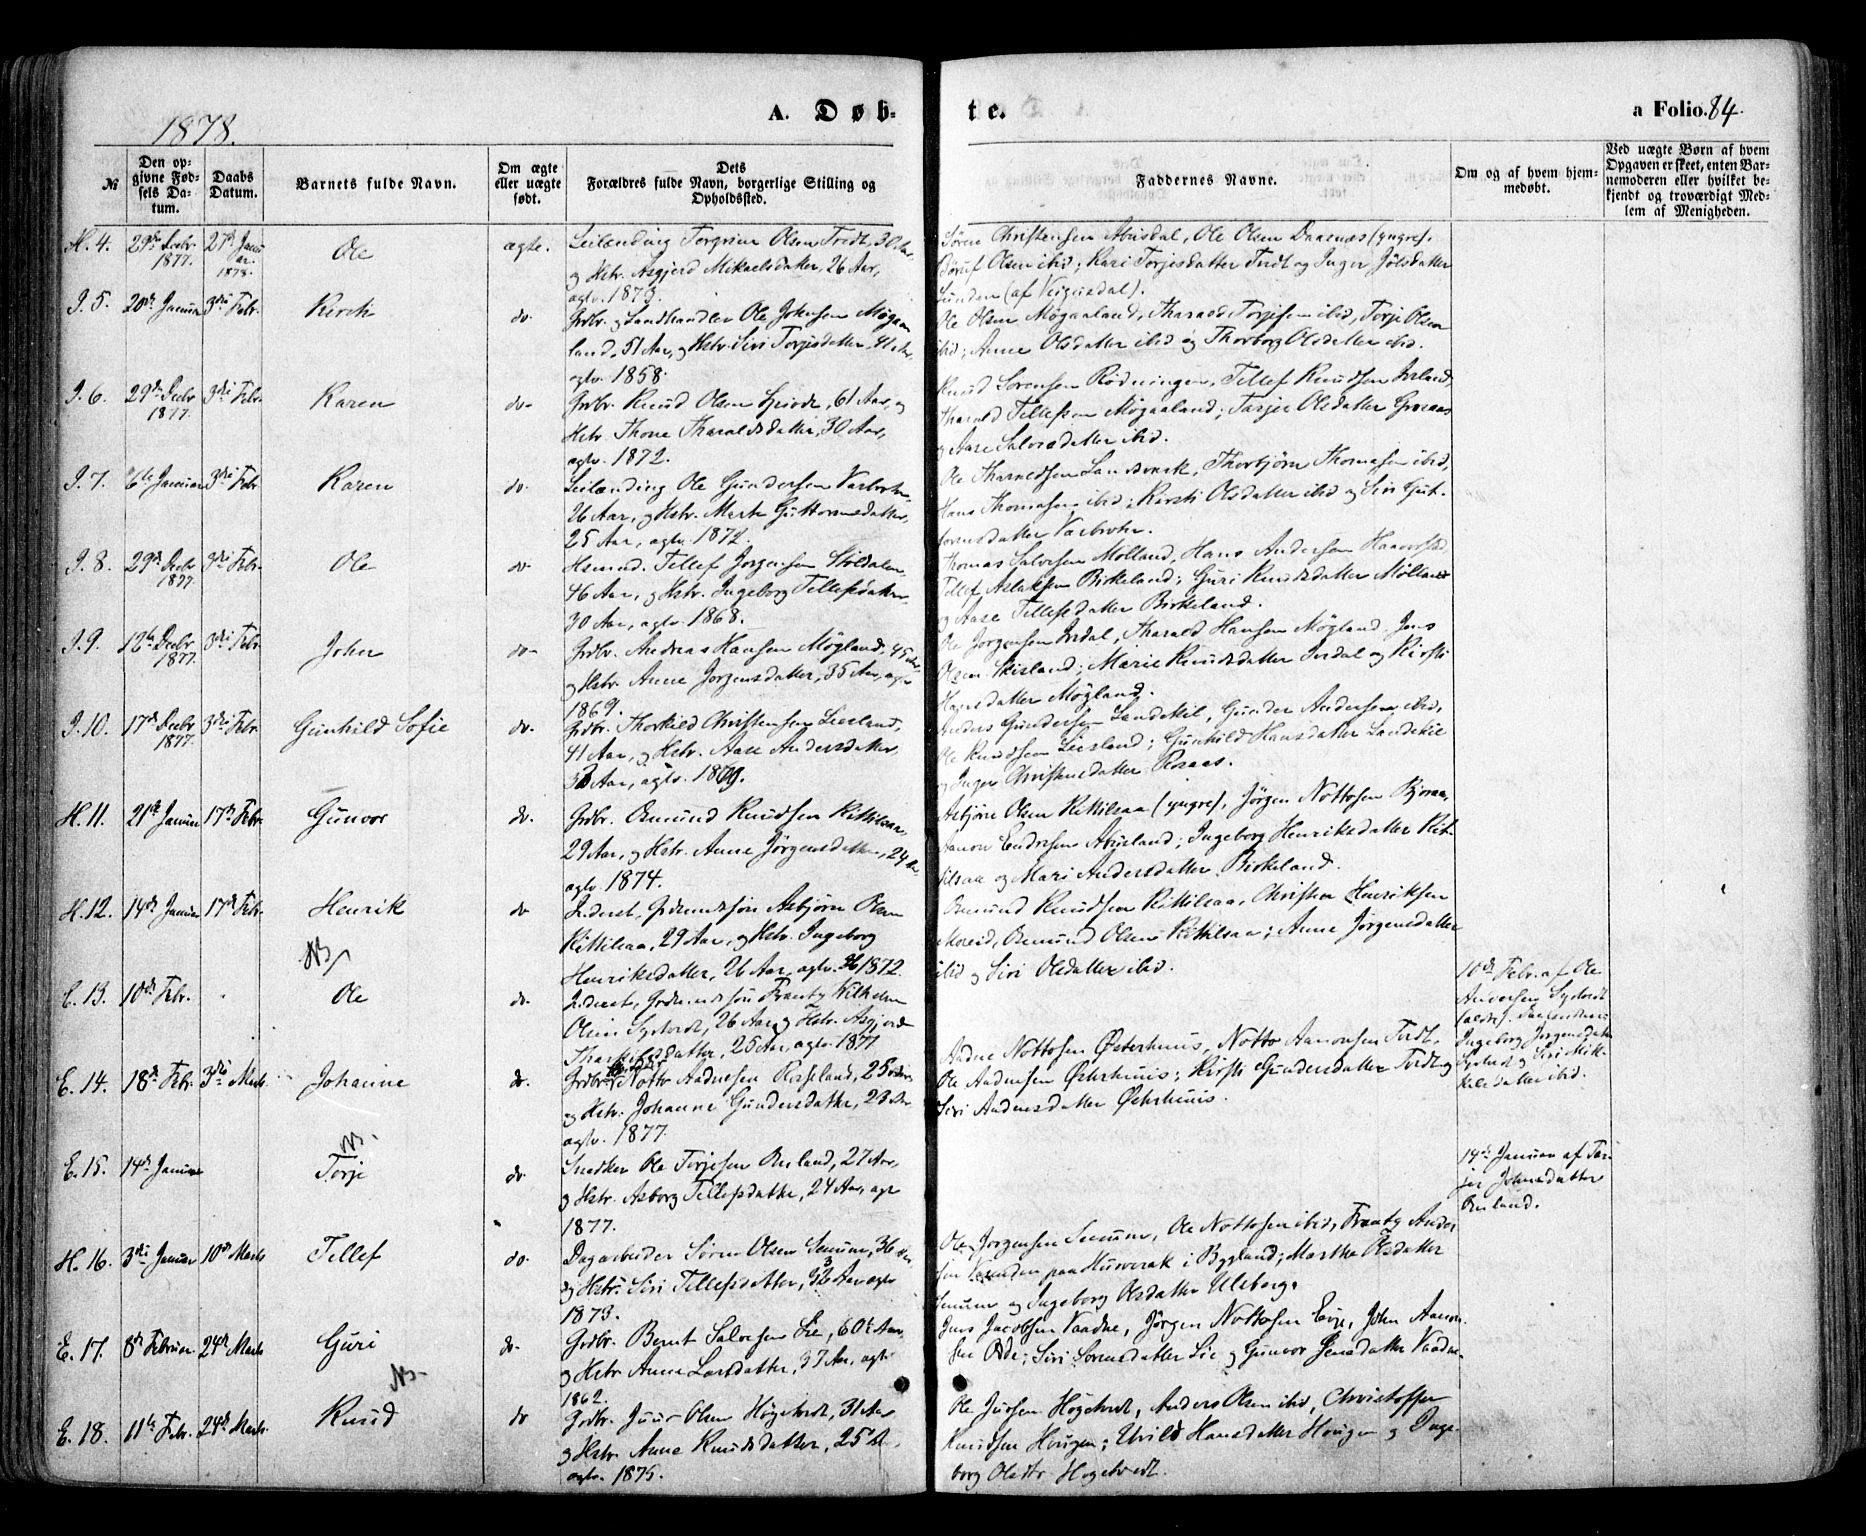 1878.
A. Døb-
te.
a Folio. 84.
№
Den op-
givne Fød-
sels Da-
tum.
Daabs
Datum.
Barnets fulde Navn.
Om ægte
eller uægte
født.
Dets
Forældres fulde Navn, borgerlige Stilling og
Opholdssted.
Faddernes Navne.
Om og af hvem hjem-
medøbt.
Ved uægte Børn af hvem
Opgaven er skeet, enten Bar-
nemoderen eller hvilket be-
kjendt og troværdigt Med-
lem af Menigheden.
H. 4.
29de Decbr
1877.
27de Janu
ar
1878.
Ole
ægte.
Leilending Torgrim Olsen Tredt, 30 Aar,
og Hstr. Asgjerd Mikaelsdatter, 26 Aar,
agtv. 1873.
Søren Christensen Abusdal, Ole Olsen Daasnæs (yngre),
Børuf Olsen ibid; Kari Torjesdatter Tredt og Inger Joelsdatter
Lunden (af Veigusdal).
I. 5.
20de Januar
3die Febr.
Kirsti
do.
Grdbr. og Landhandler Ole Johnsen Møgaa
land, 51 Aar, og Hstr. Siri Torjesdatter, 41 Aar,
agtv. 1858.
Ole Olsen Møgaaland, Tharald Torjesen ibid, Torje Olsen
ibid; Anne Olsdatter ibid og Thorborg Olsdatter ibid.
I. 6.
29de Decbr
1877.
3die Febr.
Karen
do.
Grdbr. Knud Olsen, 61 Aar, og
Hstr. Thone Tharaldsdatter, 30 Aar,
agtv. 1872.
Knud Sørensen Rødningen, Tellef Knudsen Iveland,
Tharald Tellefsen Møgaaland; Tarjer Olsdatter
og Aase Salvesdatter ibid.
I. 7.
6te Januar
3die Febr
Karen
do.
Leilending Ole Gundersen Varbroten,
26 Aar, og Hstr. Marte Guttormsdatter,
25 Aar, agtv. 1872.
Ole Tharaldsen Landsverk, Thorbjørn Thomasen ibid,
Hans Thomasen ibid; Kirsti Olsdatter ibid og Siri Gut-
tormsdatter Varbroten.
I. 8.
29de Decbr
1877.
3die Febr.
Ole
do
Husmd. Tellef Jørgensen Skoldalen,
46 Aar, og Hstr. Ingeborg Tellefsdatter,
30 Aar, agtv. 1868.
Thomas Salvesen Molland, Hans Andersen Haavorstad,
Tellef Aslaksen Birkeland; Guri Knudsdatter Molland
og Aase Tellefsdatter Birkeland.
I. 9.
12te Decbr
1877.
3die Febr.
John
do-
Grdbr. Andreas Hansen Møgland, 45 Aar,
og Hstr. Anne Jørgensdatter, 35 Aar, agtv
1869.
Ole Jørgensen Iusdal, Tharald Hansen Møgland, Jens
Olsen Skisland; Marie Knudsdatter Iusdal og Kirsti
Hansdatter Møgland.
I. 10.
17de Decbr
1877.
3die Febr.
Gunhild Sofie
do.
Grdbr. Thorkild Christensen Liesland,
41 Aar, og Hstr. Aase Andersdatter,
33 Aar, agtv. 1869.
Anders Gundersen Landekil, Gunder Andersen ibid,
Ole Knudsen Liesland; Gunhild Hansdatter Landekil
og Inger Christensdatter Rosaas.
H. 11.
21de Januar
17de Febr.
Gunvor
do.
Grdbr. Osmund Knudsen Kittilsaa,
29 Aar, og Hstr. Anne Jørgensdatter, 24 Aar,
agtv. 1874.
Asbjørn Olsen Kittilsaa (yngre), Jørgen Nottosen Bjoraa,
Aanon Endresen Abusland; Ingeborg Henriksdatter Kit-
tilsaa og Mari Andersdatter Birkeland.
H. 12.
14de Januar
17de Febr.
Henrik
do
Inderst, Grdmandssøn Asbjørn Olsen
Kittilsaa, 29 Aar, og Hstr. Ingeborg
Henriksdatter, 26 Aar, agtv. 1872.
Osmund Knudsen Kittilsaa, Christen Henriksen
Moseid, Osmund Olsen Kittilsaa; Anne Jørgensdatter
ibid og Siri Olsdatter ibid.
NB
E. 13.
10de Febr.
Ole
do.
Inderst, Grdmandssøn Frantz Vilhelm
Olsen Sydtvedt, 26 Aar og Hstr. Asgjerd
Tharaldsdatter, 25 Aar, agtv. 1877
10de Febr. af Ole
Andersen Sydtvedt
(ældre)
Ingeborg Jørgensdatter
Sydtvedt og Siri Mik-
kelsdatter ibid.
E. 14.
18de Febr.
3die Marts
Johanne
do.
Grdbr. Notto Aadnesen Rosseland, 25 Aar
og Hstr. Johanne Gundersdatter, 23 Aar
agtv. 1877.
Aadne Nottosen Østerhuus, Notto Aanonsen Tvedt,
Ole Aadnesen Østerhuus; Kirsti Gundersdatter Tvedt og
Siri Aadnesdatter Østerhuus.
NB.
E. 15.
14de Januar
Torje
do.
Snedker Ole Torjesen Omland, 27 Aar,
og Hstr. Asborg Tellefsdatter, 24 Aar, agtv
1877.
14de Januar af Tar-
jer Johnsdatter
Omland.
H. 16.
3die Januar
10de Marts
Tellef
do.
Dagarbeider Søren Olsen Senum, 36 Aar,
og Hstr. Siri Tellefsdatter, 32 Aar agtv
1873.
Ole Jørgensen Senum, Ole Nottosen ibid, Frantz Anders
sen Venden paa Husverak i Bygland; Marthe Olsdatter
Senum og Ingeborg Olsdatter Uleberg.
E. 17.
8de Februar.
24de Marts
Guri
do.
Grdbr. Bernt Salvesen Lie, 60 Aar,
og Hstr Anne Larsdatter, 37 Aar, agtv
1862.
Jens Jacobsen Vaadne, Jørgen Nottosen Evje, John Aanon-
sen Odde; Siri Sørensdatter Lie og Gunvor Jensdatter Vaadne.
NB-
E. 18.
11te Febr.
24de Marts.
Knud
do
Grdbr. Juur Olsen Høgetvedt, 31 Aar
og Hstr. Anne Knudsdatter, 25 Aar,
agtv. 1875.
Ole Jursen Høgetvedt, Anders Olsen ibid, Christoffer
Knudsen Hougen; Uvild Hansdatter Hougen og Inge-
borg Olsdtr Høgetvedt.